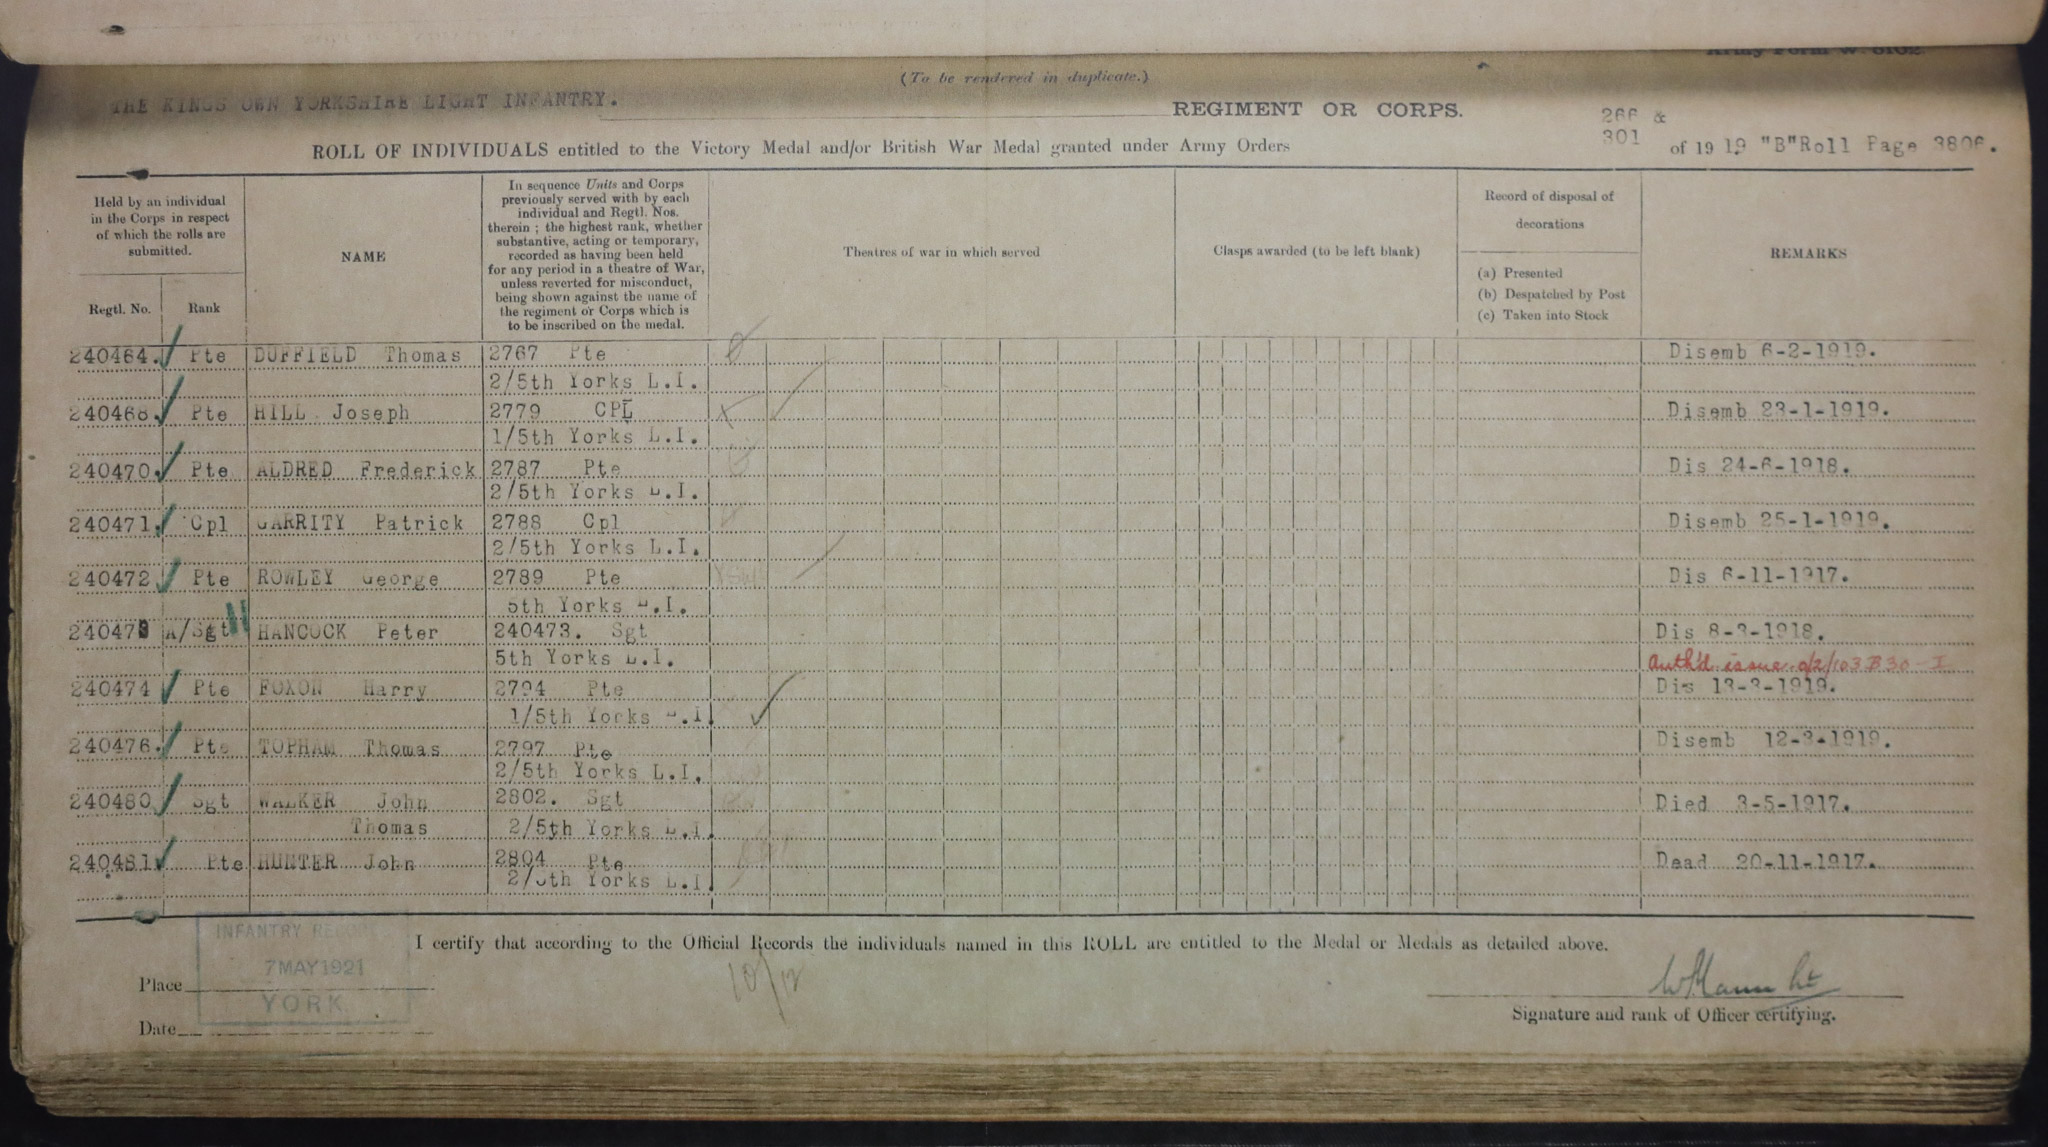 (To be rendered in duplicate.)
THE KINGS OWN YORKSHIRE LIGHT INFANTRY. REGIMENT OR CORPS.
266 &
ROLL OF INDIVIDUALS entitled to the Victory Medal and/or British War Medal granted under Army Orders 301 of 19 19 "B"Roll Page 3806.
Held by an individual in the Corps in respect of which the rolls are submitted.
Regtl. No. Rank
NAME
In sequence Units and Corps
previously served with by each
individual and Regtl. Nos.
therein ; the highest rank, whether
substantive, acting or temporary,
recorded as having been held
for any period in a theatre of War,
unless reverted for misconduct,
being shown against the name of
the regiment or Corps which is
to be inscribed on the medal.
Theatres of war in which served
Clasps awarded (to be left blank)
Record of disposal of
decorations
(a) Presented
(b) Despatched by Post
(c) Taken into Stock
REMARKS
240464. Pte DUFFIELD Thomas 2767 Pte Disemb 6-2-1919.
2/5th Yorks L.I.
240468 Pte HILL Joseph 2779 CPL Disemb 23-1-1919.
1/5th Yorks L.I.
240470 Pte ALDRED Frederick 2787 Pte Dis 24-6-1918.
2/5th Yorks L.I.
240471. Cpl GARRITY Patrick 2788 Cpl Disemb 25-1-1919.
2/5th Yorks L.I.
240472 Pte ROWLEY George 2789 Pte Dis 6-11-1917.
5th Yorks L.I.
240473 A/Sgt N HANCOCK Peter 240473. Sgt Dis 8-3-1918.
5th Yorks L.I. Auth'd issue
240474 Pte FOXON Harry 2794 Pte Dis 13-3-1919.
1/5th Yorks L.I.
240476. Pte TOPHAM Thomas 2797 Pte Disemb 12-3-1919.
2/5th Yorks L.I.
240480 Sgt WALKER John 2802. Sgt Died 3-5-1917.
Thomas 2/5th Yorks L.I.
240481 Pte HUNTER John 2804 Pte Dead 20-11-1917.
2/5th Yorks L.I.
I certify that according to the Official Records the individuals named in this ROLL are entitled to the Medal or Medals as detailed above.
INFANTRY
7 MAY 1921
YORK
Place
Date
10/12
Signature and rank of Officer certifying.